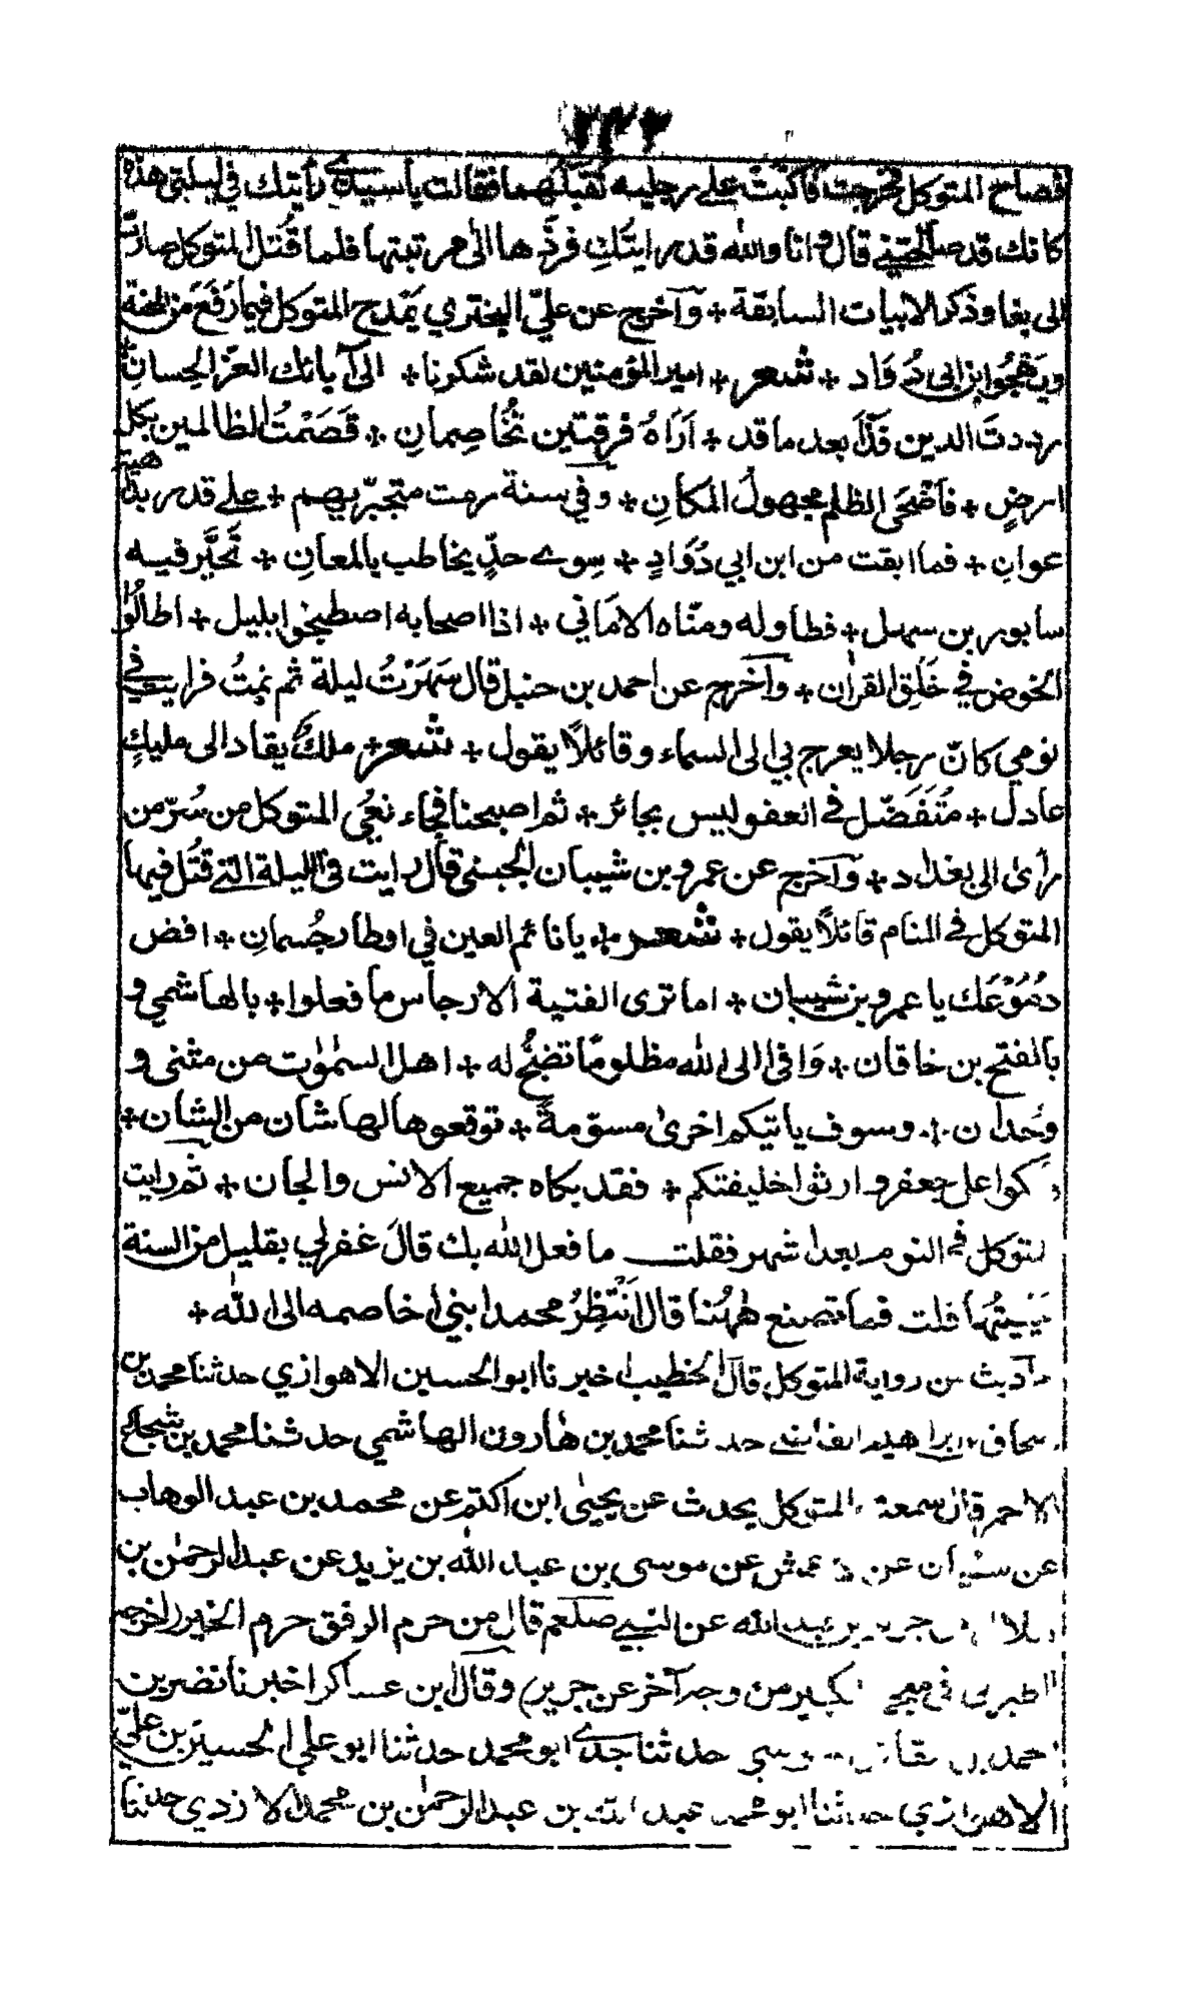 فصاح المتوكل فخرجت فاكبّت على رجليه تقبلهما فقالت يا سيدي رأيتك في ليلتي هذه
كانك قد صالحتني قال وانا والله قد رايتُكِ فردّها الى مرتبتها فلما قُتل المتوكل صارت
الى بغا وذكر الابيات السابقة + وآخرج عن عليّ البختري يَمْدح المتوكل فيما رَفَعَ من المحنة
ويَهْجُوا بن ابي دُوَاد + شعر + امير المؤمنين لقد شكرنا + الى آبائك الغرّ الحِسانِ +
رددتَ الدين فَذًّا بعد ما قد + أَرَاهُ فرقتين تخاصِمانِ + قَصَمْتَ الظالمين بكل
ارضٍ + فاَضْحَى الظلم مجهولَ المكانِ + وفي سنة رمت متجبّريهم + على قدر بداهية
عوانِ + فما ابقت من ابن ابي دُوَادٍ + سِوى حدٍّ يخاطب بالمعانِ + تَحَيَّر فيه
سابور بن سهل + فطاوله ومنّاه الامَاني + اذا اصحابه اصطبحوا بليل + اطالُوا
الخوض في خَلْقِ القرآن + وآخرج عن احمد بن حنبل قال سَهَرْتُ ليلة ثم نِمتُ فرايت في
نومي كانّ رجلا يعرج بي الى السماء وقائلًا يقول + شعر + ملكٌ يقاد الى مليكٍ
عادل + مُتَفَضّل في العفو ليس بجائر + ثم اصبحنا فجاء نَعْيُ المتوكل من سُرّ من
رأى الى بغداد + وآخرج عن عمرو بن شيبان الجهني قال رايت في الليلة التي قُتل فيها
المتوكل في المنام قائلًا يقول + شعر + يا نائم العين في اوطار جُسمانِ + افض
دُمُوْعَك يا عمرو بن شيبان + اما ترى الفتية الارجاس ما فعلوا + بالهاشمي و
بالفتح بن خاقان + وَافى الى الله مظلومًا تضجّ له + اهل السمٰوٰت من مثنى و
وُحدان + وسوف ياتيكم اخرىٰ مسوّمةٌ + توقعوها لها شان من الشان +
كوا على جعفر وارثوا خليفتكم + فقد بكاه جميع الانس والجان + ثم رايت
لمتوكل في النوم بعد شهر فقلت ما فعل الله بك قالَ غفر لي بقليل من السنة
قلت فما تصنع هٰهُنا قال اَنْتَظِرُ محمدا بني اخاصمه الى الله +
من رواية المتوكل قال الخطيب اخبرنا ابو الحسين الاهوازي حدثنا محمد بن
حدثنا محمد بن هٰارون الهاشمي حدثنا محمد بن شجاع
الاحمر قال سمعت المتوكل يحدث عن يحيىٰ ابن اكثم عن محمد بن عبد الوهاب
عن سفيان عن الاعمش عن موسى بن عبد الله بن يزيد عن عبد الرحمٰن بن
جرير بن عبد الله عن النبي صلعم قال من حرم الرفق حرم الخير اخرجه
الطبراني في معجمه الكبير من وجه آخر عن جرير) وقال ابن عساكر اخبرنا نضر بن
احمد بن حدثنا جدي ابو محمد حدثنا ابو علي الحسين بن عليّ
الاهوازي حدثنا ابو محمد عبد الله بن عبد الرحمٰن بن محمد الازدي حدثنا